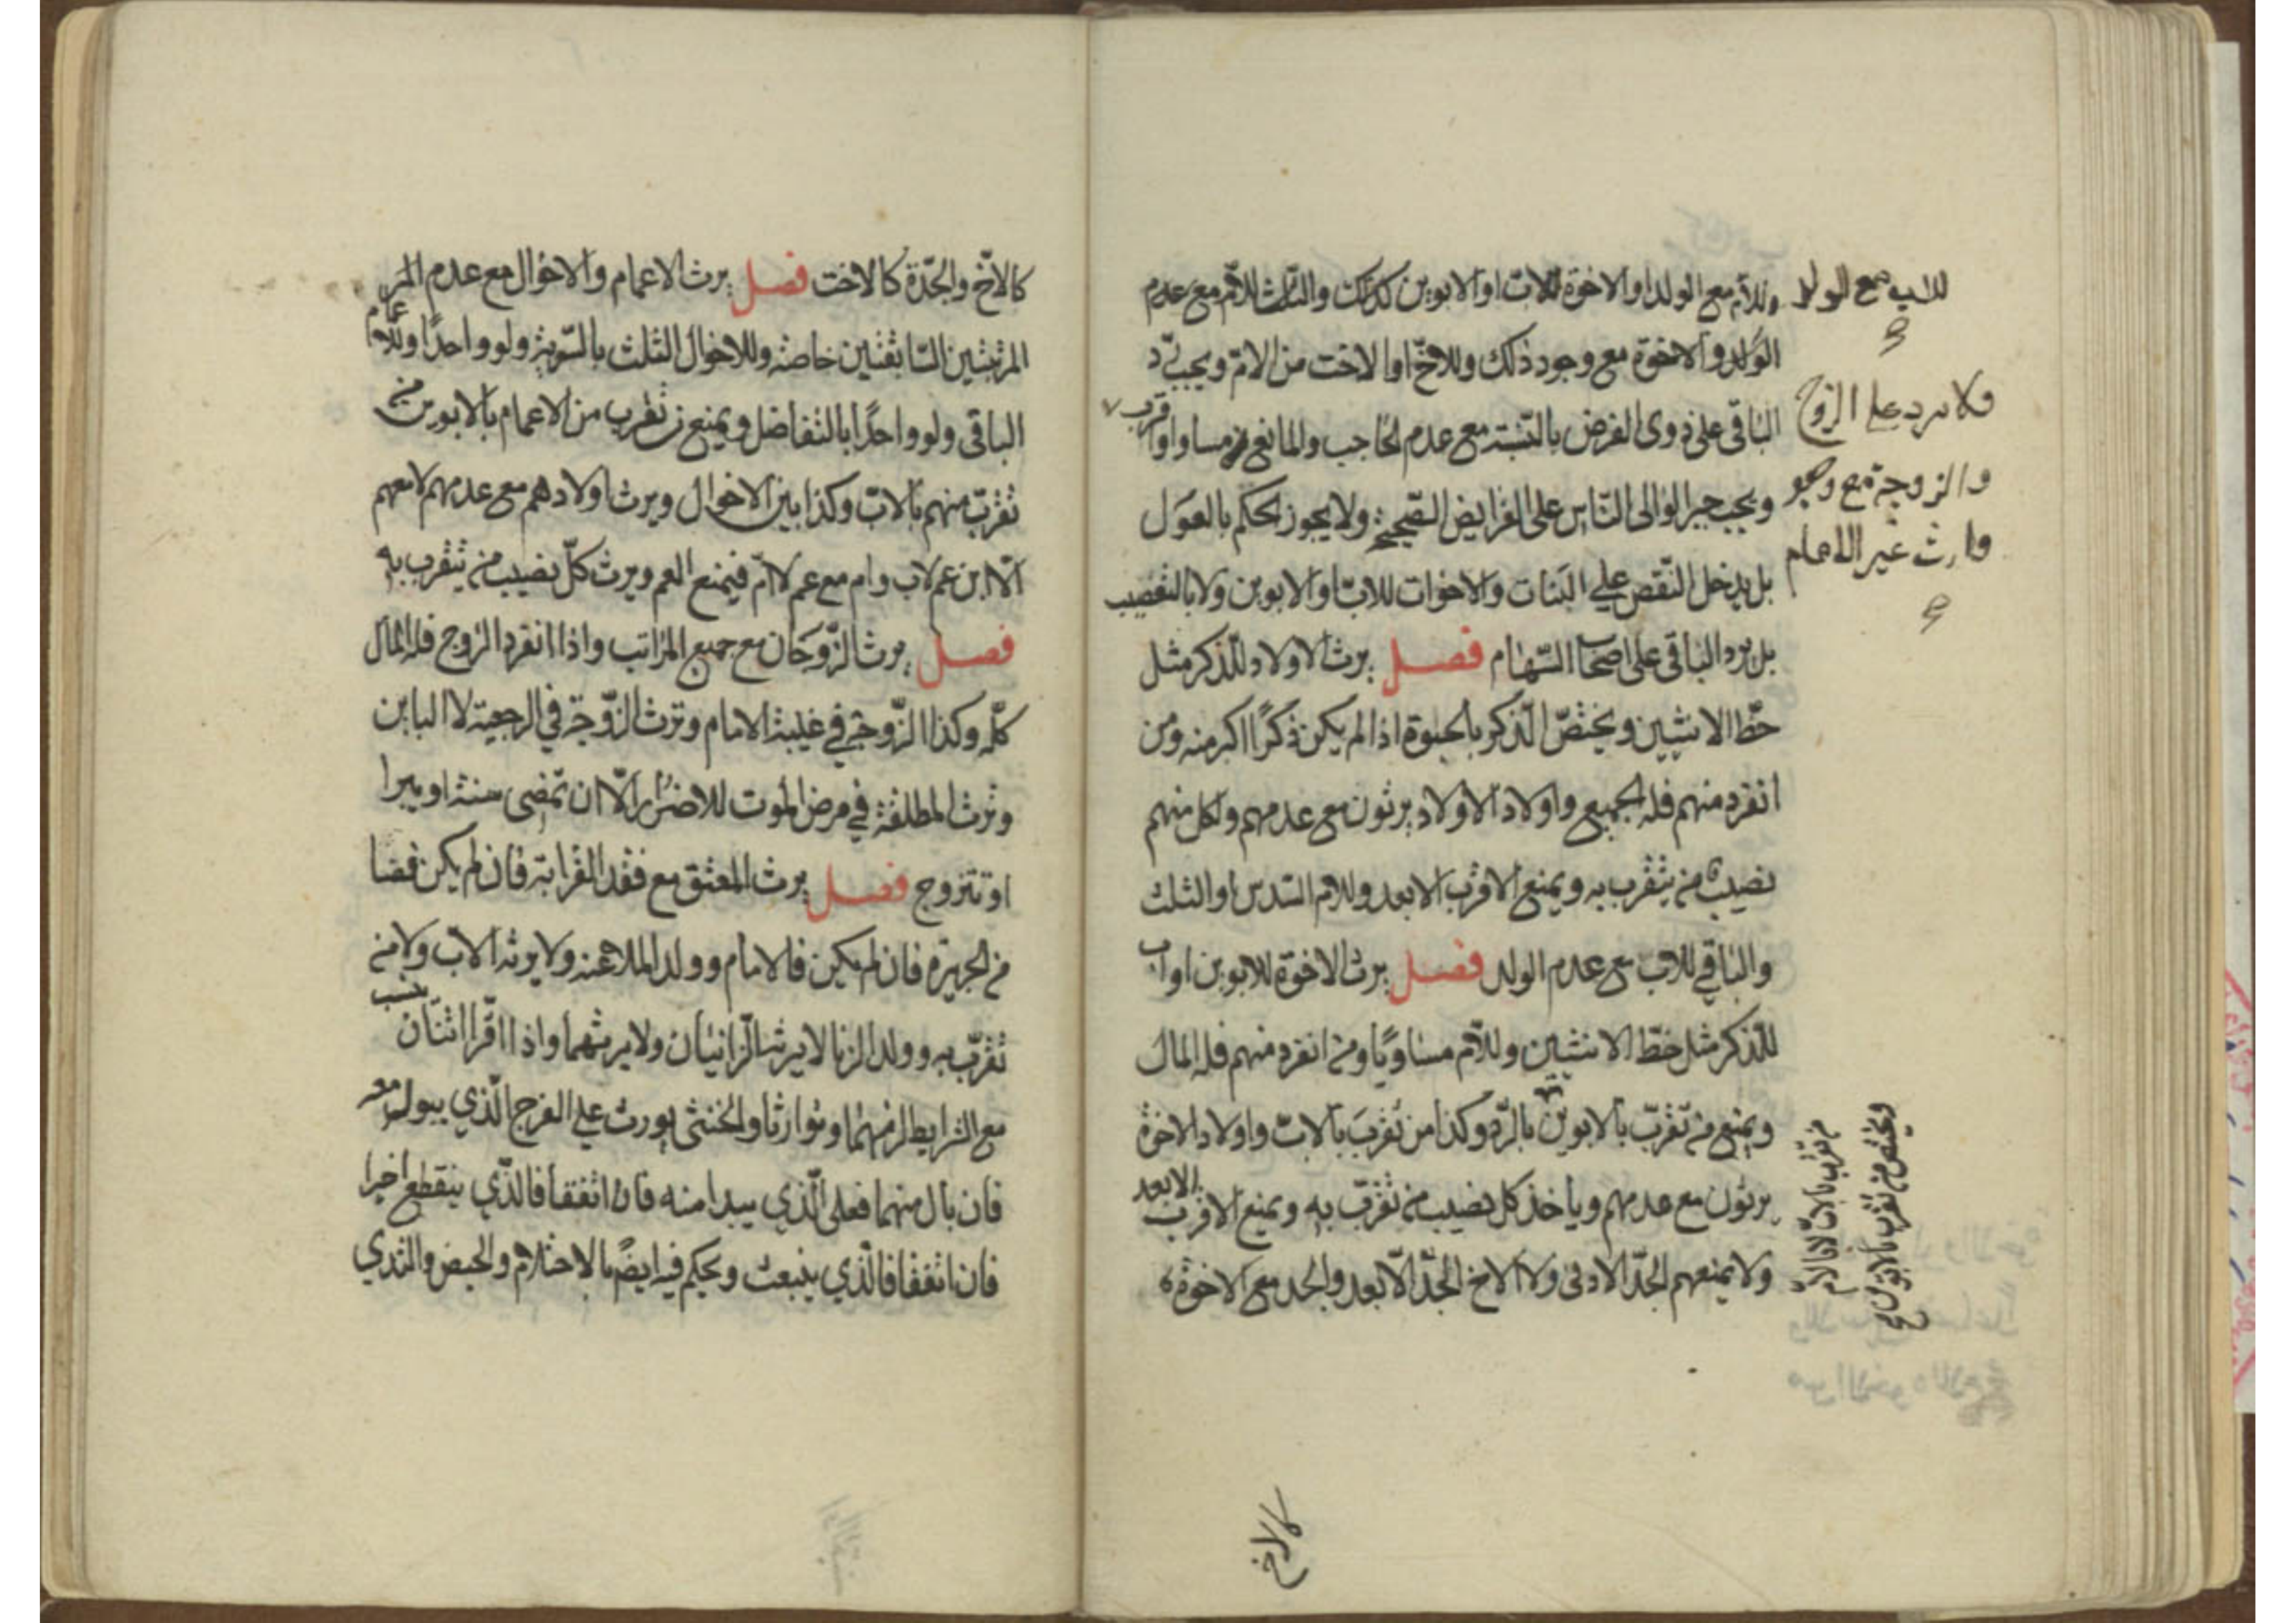 وللأم مع الولد او الاخوة للاب او الابوين كذلك والثلث للأم مع عدم
الولد والاخوة مع وجود ذلك وللاخ او الاخت من الام ويجب رد
الباقى على ذوى الفرض بالنسبة مع عدم الحاجب والمانع من مساو او اقرب
ويجب جبر الوالى الناس على الفرايض الصحيحة ولا يجوز الحكم بالعول
بل يدخل النقص على البنات والاخوات للاب او الابوين ولا بالتعصيب
بل يرد الباقى على اصحاب السهام فصل يرث الاولاد للذكر مثل
حظ الانثيين ويختص الذكر بالحبوة اذا لم يكن ذكرًا اكبر منه ومن
انفرد منهم فله الجميع واولاد الاولاد يرثون مع عدمهم ولكل منهم
نصيب من يتقرب به ويمنع الاقرب الابعد وللام السدس او الثلث
والباقي للاب مع عدم الولد فصل يرث الاخوة للابوين او اب
للذكر مثل حظ الانثيين وللأم مساويًا ومن انفرد منهم فله المال
ويمنع من تقرب بالابوين بالرد وكذا من تقرب بالاب واولاد الاخوة
يرثون مع عدمهم وياخذ كل نصيب من تقرب به ويمنع الاقرب الابعد
ولا يمنعهم الجد الادنى ولا الاخ الجد الابعد والجد مع الاخوة
للاب مع الولد
ولا يرد على الزوج
والزوجة مع وجود
وارث غير الامام
ويختص من تقرب بالابوين
من تقرب بالاب لا بالام
كالاخ
كالأخ والجدة كالاخت فصل يرث الاعمام والاخوال مع عدم
المرتبتين السابقتين خاصة وللاخوال الثلث بالسوية ولو واحدًا وللاعمام
الباقى ولو واحدًا بالتفاضل ويمنع من تقرب من الاعمام بالابوين من
تقرب منهم بالاب وكذا بين الاخوال ويرث اولادهم مع عدمهم لا معهم
الا ابن عم لاب وام مع عم لام فيمنع العم ويرث كل نصيب من يتقرب به
فصل يرث الزوجان مع جميع المراتب واذا انفرد الزوج فله المال
كله وكذا الزوجة في غيبة الامام وترث الزوجة في الرجعية لا الباين
وترث المطلقة في مرض الموت للاضرار الا ان تمضى سنة او يبرا
او تتزوج فصل يرث المعتق مع فقد القرابة فان لم يكن فضا
من الجريرة فان لم يكن فالامام وولد الملاعنه ولا يرثه الاب ولا من
تقرب به وولد الزنا لا يرث الزانيان ولا يرثهما واذا اقر اثنان بنسب
مع الشرايط لزمهما وتوارثا والخنثى يورث على الفرج الذي يبول منه
فان بال منهما فعلى الذي يبدا منه فان اتفقا فالذي ينقطع اخيرا
فان اتفقا فالذي ينبعث ويحكم فيه ايضًا بالاحتلام والحيض والثدي